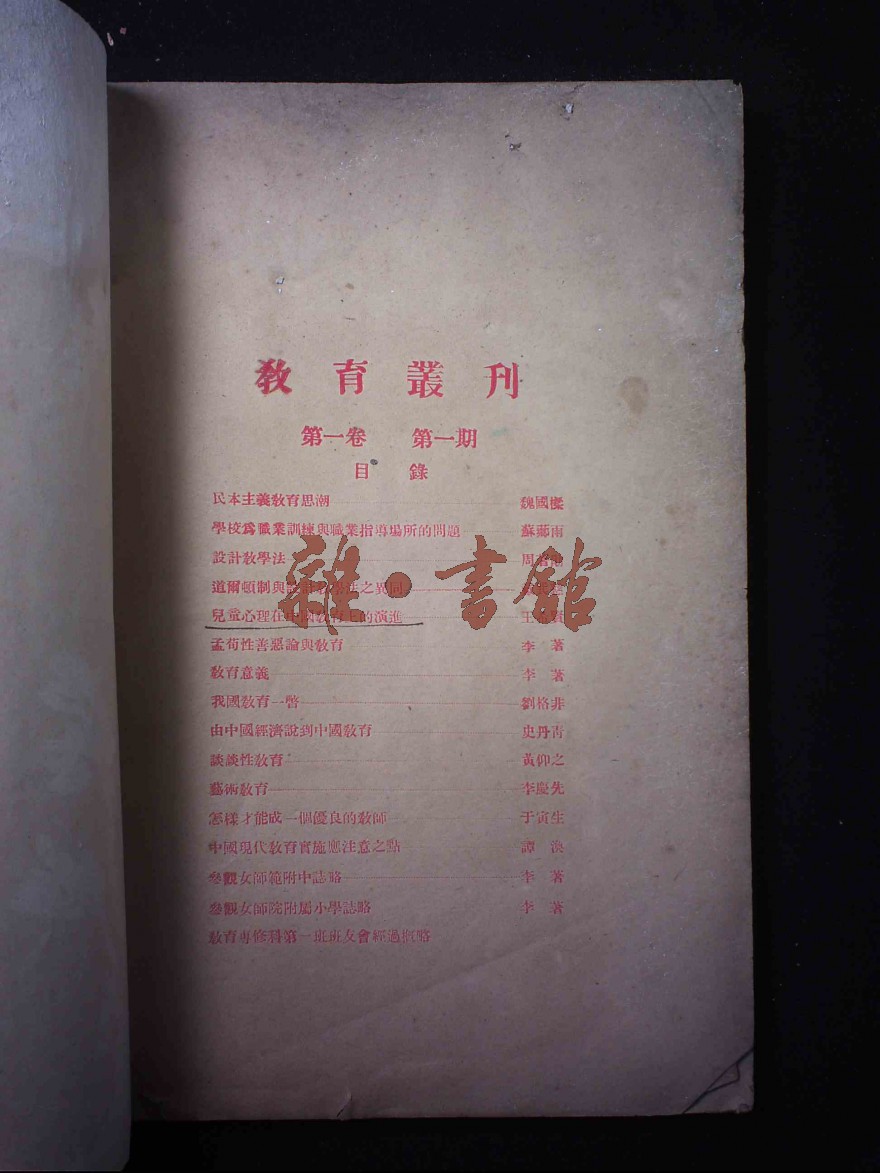 教育叢刊
第一卷 第一期
目錄
民本主義教育思潮 魏國
學校為職業訓練與職業指導場所的問題 蘇 雨
設計教學法 周
道爾頓制與設計教學法之異同
兒童心理在中國教育上的演進 王
孟荀性善惡論與教育 李著
教育意義 李著
我國教育一瞥 劉格非
由中國經濟說到中國教育 史丹青
談談性教育 黃仰之
藝術教育 李慶先
怎樣才能成一個優良的教師 于寅生
中國現代教育實施應注意之點 譚
參觀女師範附中誌略 李著
參觀女師院附屬小學誌略 李著
教育專修科第一班班友會經過概略
雜·書館